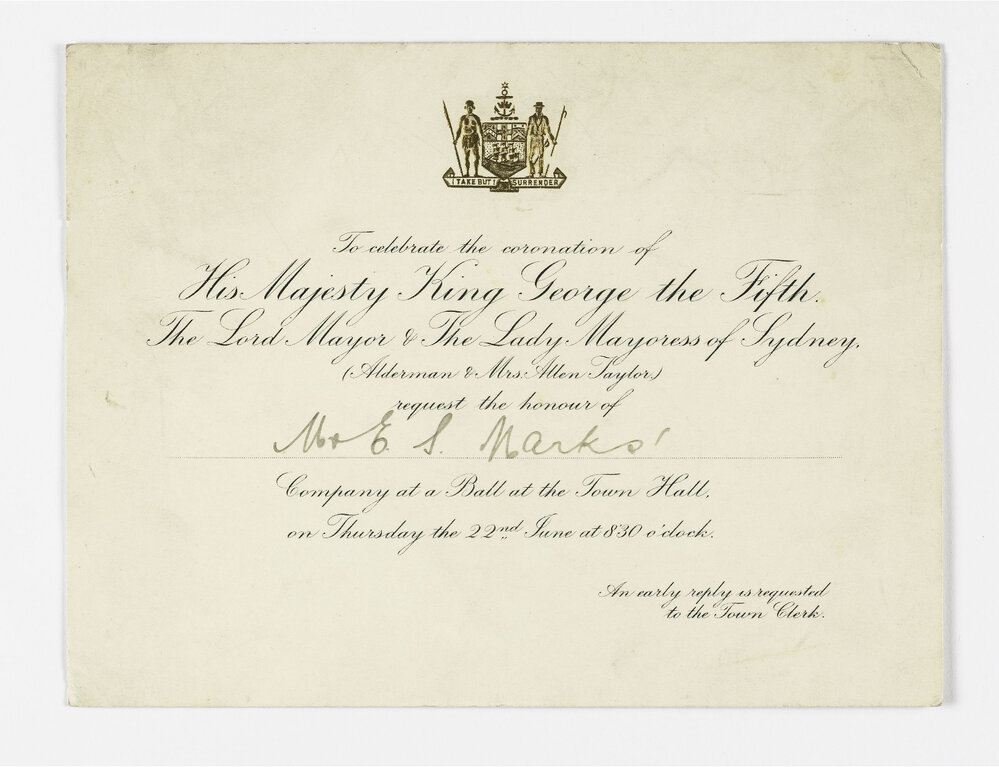 I TAKE BUT I SURRENDER
To celebrate the coronation of
His Majesty King George the Fifth.
The Lord Mayor & The Lady Mayoress of Sydney,
(Alderman & Mrs. Allen Taylor,)
request the honour of
Mr E. S. Marks'
Company at a Ball at the Town Hall,
on Thursday the 22nd June at 8'30 o'clock.
An early reply is requested
to the Town Clerk.